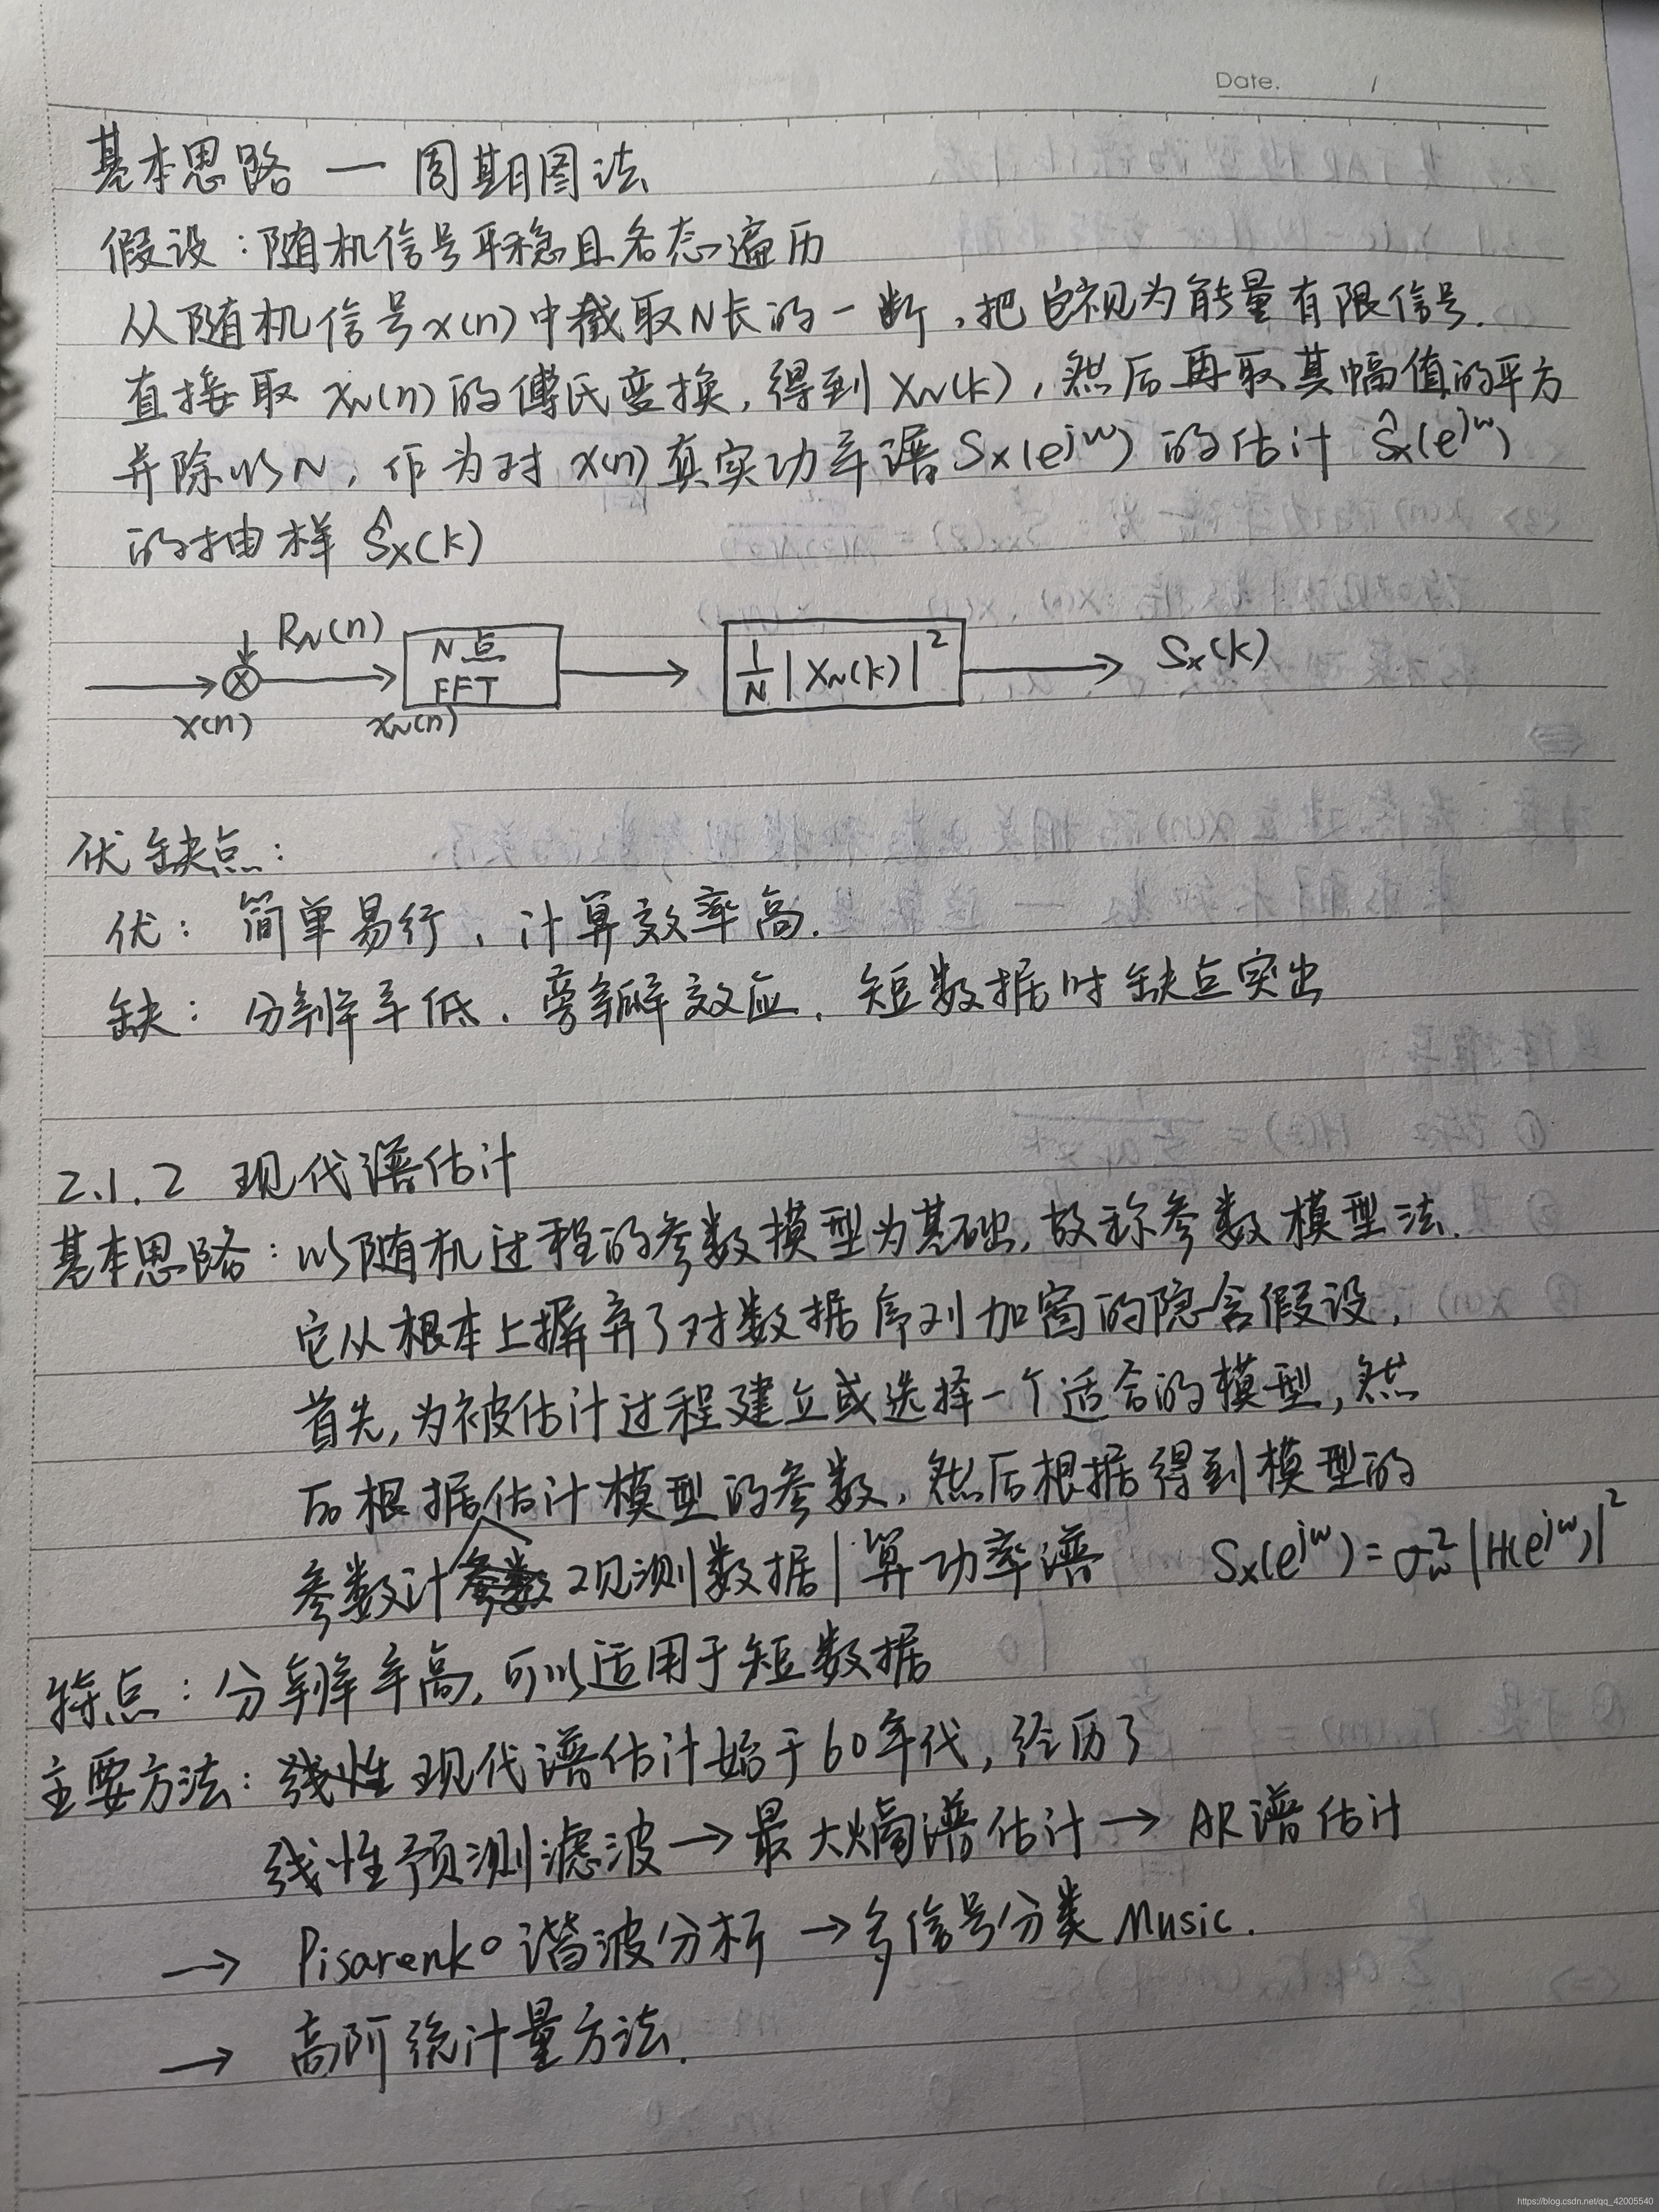 Date. /
基本思路 — 周期图法
假设：随机信号平稳且各态遍历
从随机信号x(n)中截取N长的一断，把它视为能量有限信号.
直接取 x_N(n)的傅氏变换，得到X_N(k)，然后再取其幅值的平方
并除以N，作为对x(n)真实功率谱S_x(e^{jω})的估计 Ŝ_x(e^{jω})
的抽样 Ŝ_x(k)
R_N(n)
N点
FFT
1/N |X_N(k)|²
S_x(k)
x(n)
x_N(n)
优缺点：
优：简单易行，计算效率高.
缺：分辨率低、旁瓣效应、短数据时缺点突出
2.1.2 现代谱估计
基本思路：以随机过程的参数模型为基础，故称参数模型法.
它从根本上摒弃了对数据序列加窗的隐含假设，
首先，为被估计过程建立或选择一个适合的模型，然
后根据估计模型的参数，然后根据得到模型的
参数计 观测数据|算功率谱 S_x(e^{jω})=σ_w²|H(e^{jω})|²
特点：分辨率高，可以适用于短数据
主要方法：线性 现代谱估计始于60年代，经历了
线性预测滤波→最大熵谱估计→AR谱估计
→ Pisarenko谐波分析→多信号分类Music.
→ 高阶统计量方法.
https://blog.csdn.net/qq_42005540